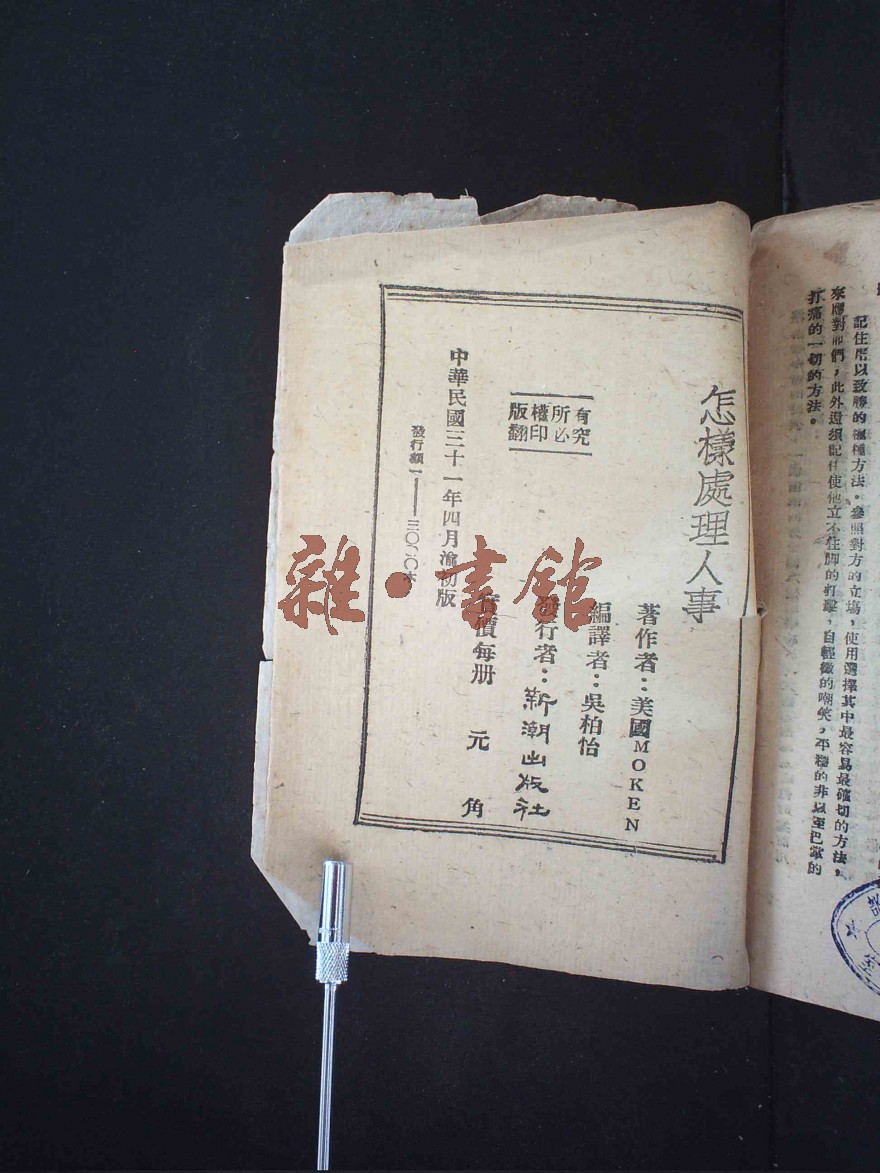 記住用以致勝的種種方法。參照對方的立場，使用選擇其中最容易最確切的方法，
來應對他們，此外還須記住使他立不住脚的打擊，自輕微的嘲笑，平穩的非議至巴掌的
打痛的一切的方法。
怎樣處理人事
著作者：美國MOKEN
編譯者：吳柏怡
發行者：新潮出版社
有所權版
究必印翻
實價每册 元 角
中華民國三十一年四月渝初版
發行額一——三〇〇〇本
雜·書館